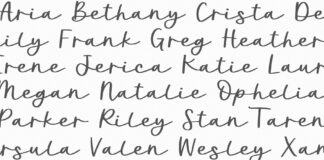 Aria Bethany Crista De
ily Frank Greg Heather
Irene Jerica Katie Laur
Megan Natalie Ophelia
Parker Riley Stan Taren
rsula Valen Wesley Xan